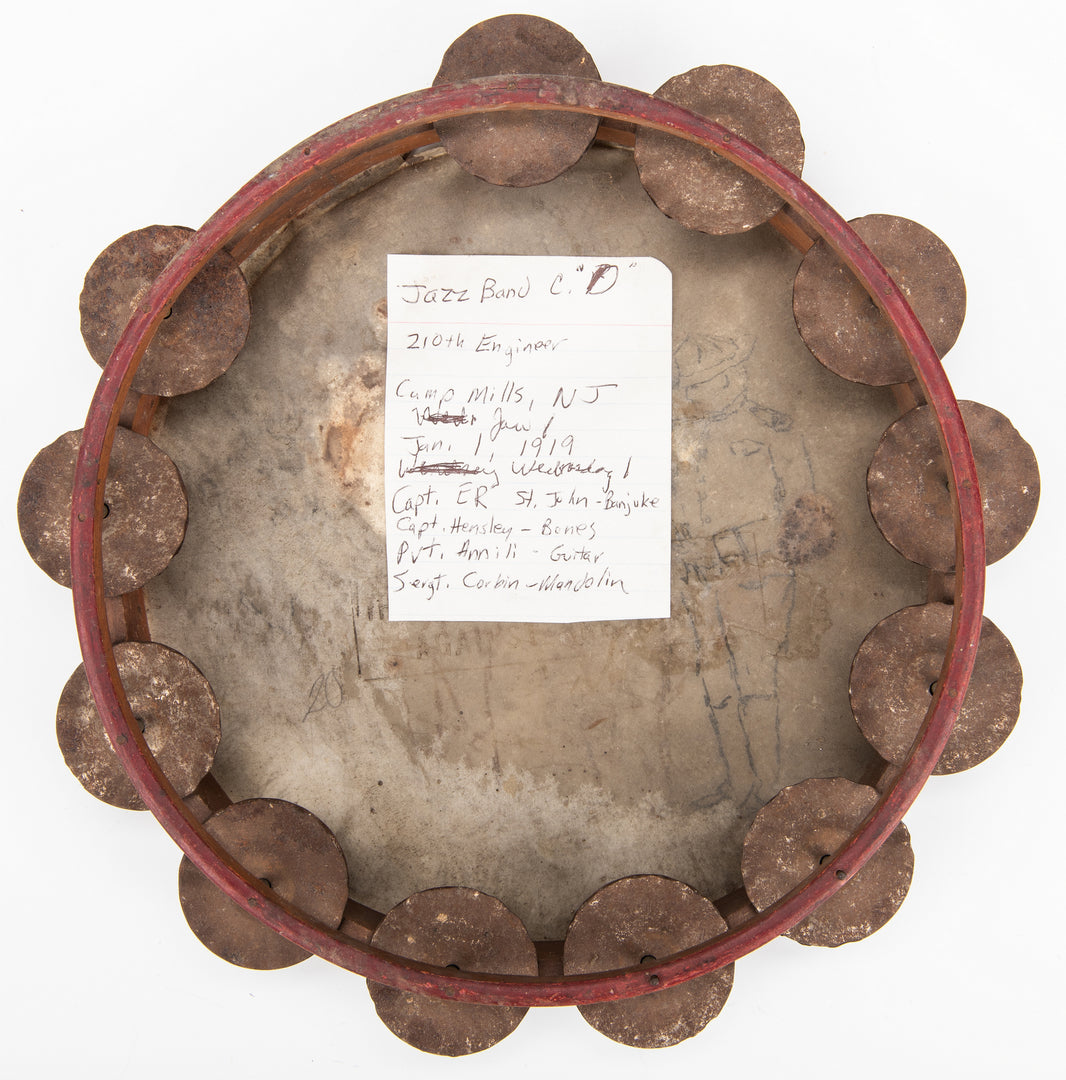 Jazz Band C. "D"
210th Engineer
Camp Mills, NJ
Jan 1
Jan. 1, 1919
Wednesday 1
Capt. ER St. John - Banjuke
Capt. Hensley - Bones
Pvt. Annili - Guitar
Sergt. Corbin - Mandolin
20